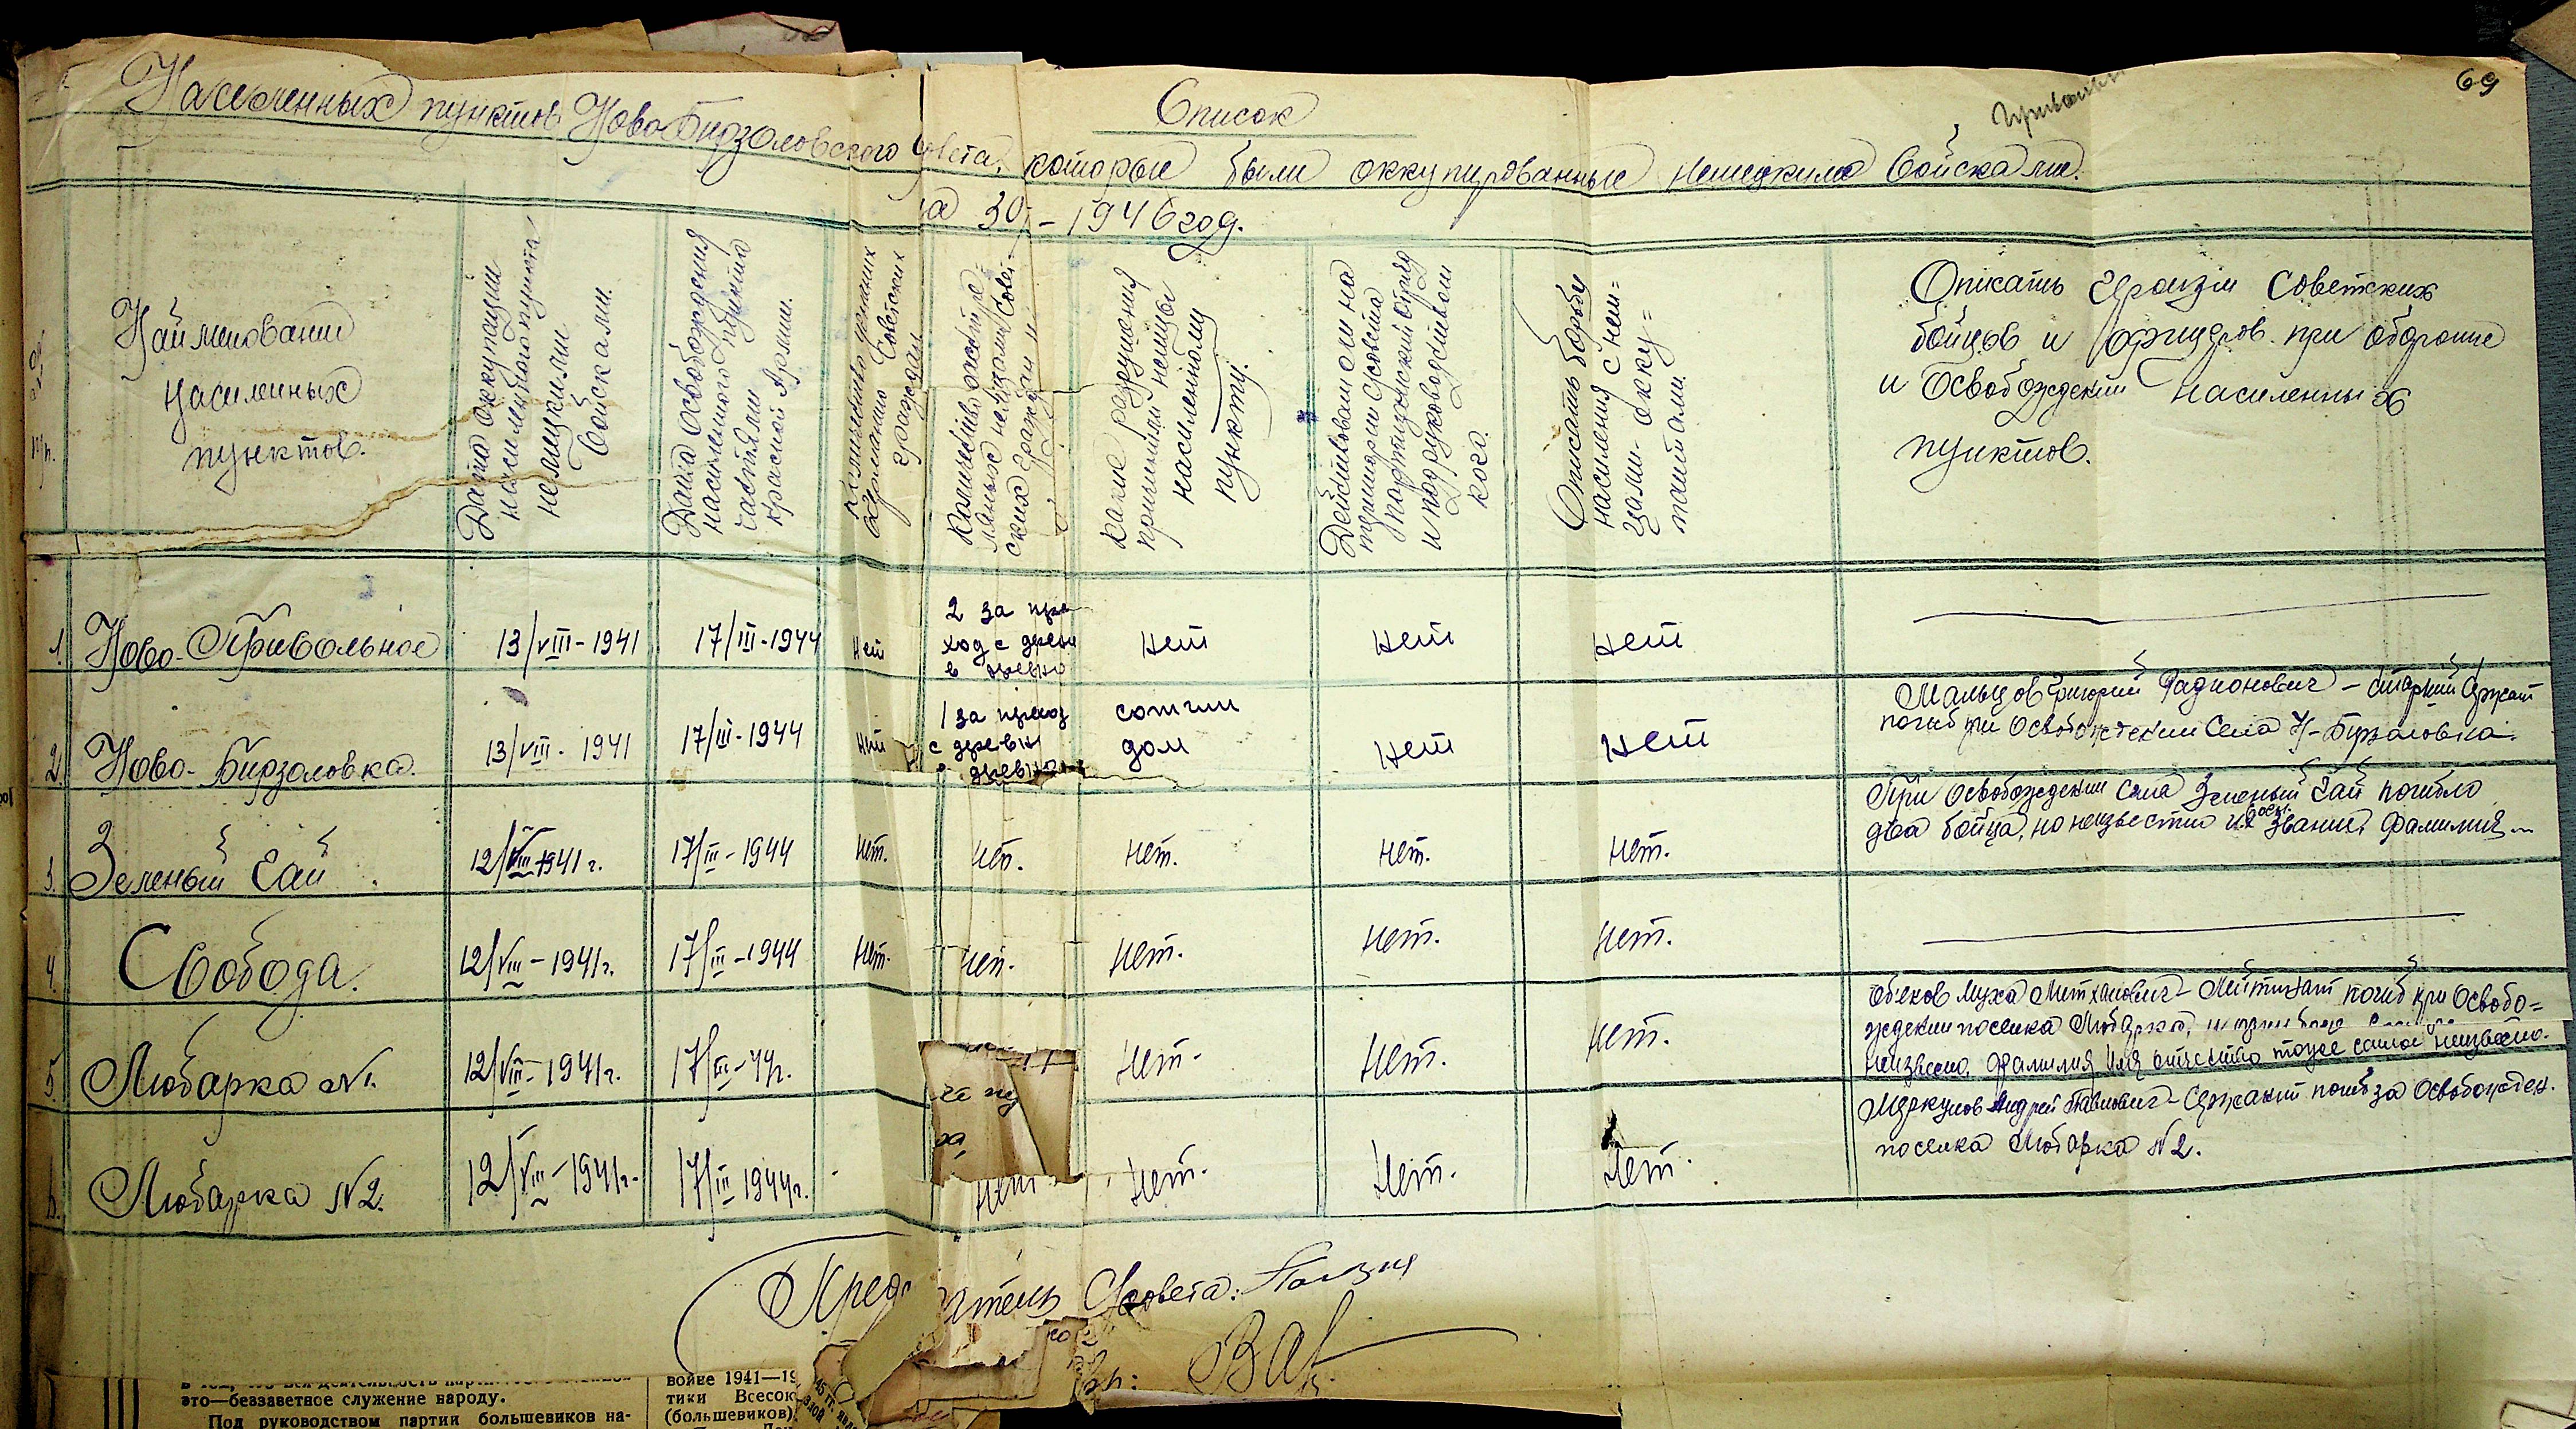 69
Список
Населенных пунктов Ново-Бирзоловского с/совета, которые были оккупированные немецкими войсками.
на 30/ - 1946 год.
№
п/п.
Наименование
населенных
пунктов.
Дата оккупации
населенного пункта
немецкими
войсками.
Дата освобождения
населенного пункта
частями
Красной Армии.
Количество угнанных
в Германию Советских
граждан
Количество расстре-
лянных немцами Совет-
ских граждан и
Какие разрушения
причинили немцы
населенному
пункту.
Действовал ли на
территории с/совета
партизанский отряд
и под руководством
кого.
Описать борьбу
населения с нем=
цами - окку=
пантами.
Описать героизм советских
бойцов и офицеров при обороне
и освобождении населенных
пунктов.
1. Ново-Привольное 13/VIII-1941 17/III-1944 нет 2 за пре-
ход с дерев
в дрвню нет нет нет
2. Ново-Бирзоловка. 13/VIII-1941 17/III-1944 нет 1 за приход
с деревни
в дрвню сотгли
дом нет нет Мальцов Григорий Радионович - старший сержант
погиб при освобождении села Н-Бирзаловка.
3. Зеленый Гай 12/VIII-1941 г. 17/III-1944 нет. нет. нет. нет. нет. При освобождении села Зеленый Гай погибло
два бойца, но неизвестно их звание, фамилия
4. Свобода. 12/VIII-1941г. 17/III-1944 нет. нет. нет. нет. нет.
5. Любарка №1. 12/VIII-1941г. 17/III-44г. нет. нет. нет. Лейтинант погиб при освобо=
ждении поселка Любарка,
неизвесно, фамилия имя отчество тоже самое неизвесно.
6. Любарка №2. 12/VIII-1941г. 17/III 1944г. нет нет. нет. нет. Меркулов Андрей Павлович - Сержант погиб за освобожден.
поселка Любарка №2.
Председатель С/совета:
войне 1941—19
это—беззаветное служение народу.
тики Всесою
Под руководством партии большевиков на-
(большевиков)